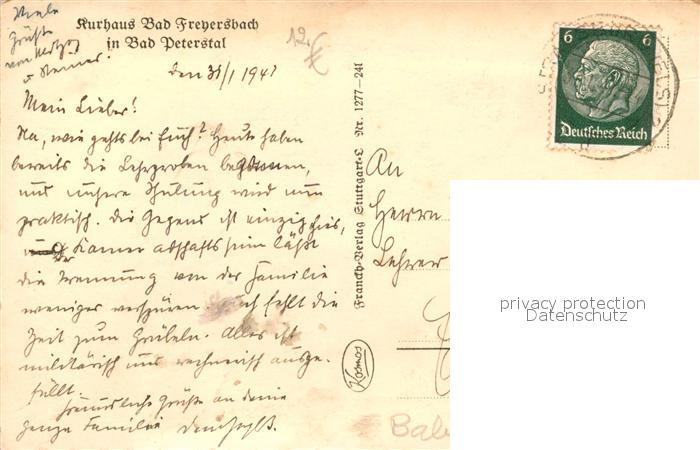 Viele
Grüße
von
Kurhaus Bad Freyersbach
in Bad Peterstal
den 31/1 194
12.- €
Mein Lieber!
Na, wie gehts bei Euch? Heute haben
bereits die Lehrproben begonnen,
und unsere Schulung wird nun
praktisch. Die Gegend ist einzig
der Kameradschaftssinn läßt
die Trennung von der Familie
weniger verspüren. Auch fehlt die
Zeit zum Grübeln. Alles ist
militärisch und ausge-
füllt.
Freundliche Grüße an deine
ganze Familie
Franckh-Verlag Stuttgart-L Nr. 1277-241
Kosmos
6 6
Deutsches Reich
An
Herrn
Lehrer
privacy protection
Datenschutz